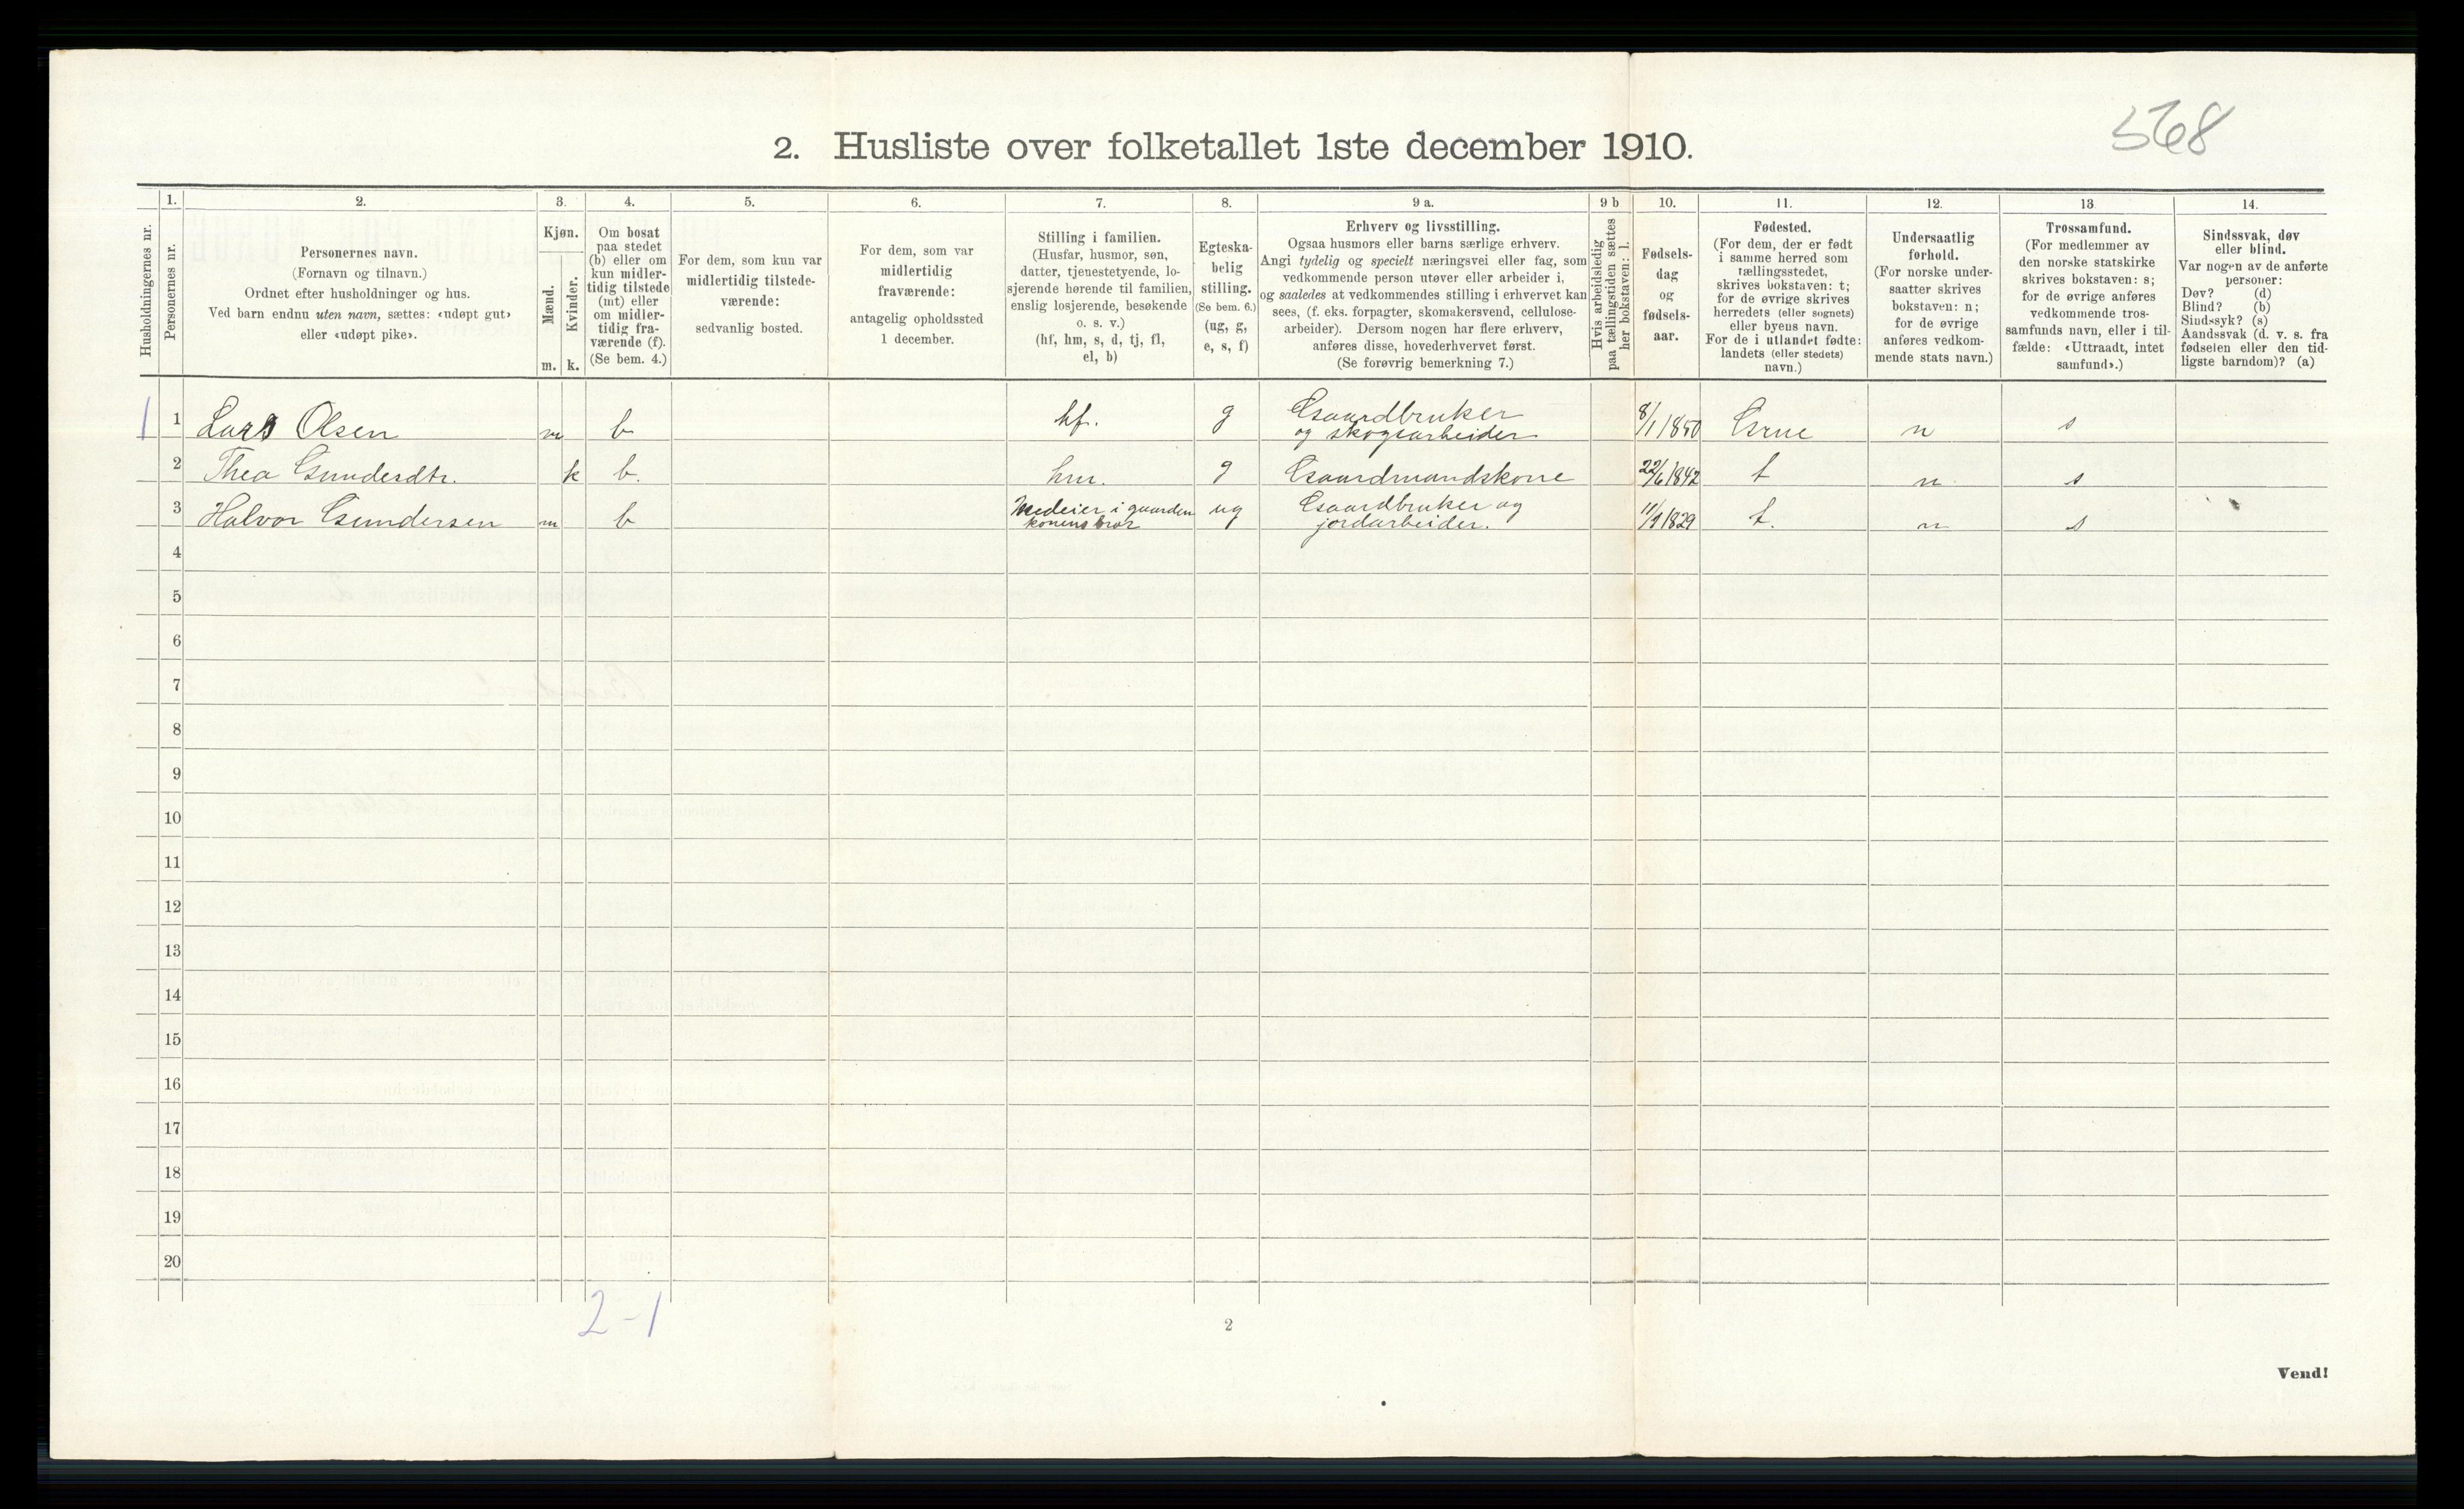 568
2. Husliste over folketallet 1ste december 1910.
Husholdningernes nr.
1.
Personernes nr.
2.
Personernes navn.
(Fornavn og tilnavn.)
Ordnet efter husholdninger og hus.
Ved barn endnu uten navn, sættes: «udøpt gut»
eller «udøpt pike».
3.
Kjøn.
Mænd.
Kvinder.
m. k.
4.
Om bosat
paa stedet
(b) eller om
kun midler-
tidig tilstede
(mt) eller
om midler-
tidig fra-
værende (f).
(Se bem. 4.)
5.
For dem, som kun var
midlertidig tilstede-
værende:
sedvanlig bosted.
6.
For dem, som var
midlertidig
fraværende:
antagelig opholdssted
1 december.
7.
Stilling i familien.
(Husfar, husmor, søn,
datter, tjenestetyende, lo-
sjerende hørende til familien,
enslig losjerende, besøkende
o. s. v.)
(hf, hm, s, d, tj, fl,
el, b)
8.
Egteska-
belig
stilling.
(Se bem. 6.)
(ug, g,
e, s, f)
9 a.
Erhverv og livsstilling.
Ogsaa husmors eller barns særlige erhverv.
Angi tydelig og specielt næringsvei eller fag, som
vedkommende person utøver eller arbeider i,
og saaledes at vedkommendes stilling i erhvervet kan
sees, (f. eks. forpagter, skomakersvend, cellulose-
arbeider). Dersom nogen har flere erhverv,
anføres disse, hovederhvervet først.
(Se forøvrig bemerkning 7.)
9 b
Hvis arbeidsledig
paa tællingstiden sættes
her bokstaven: l.
10.
Fødsels-
dag
og
fødsels-
aar.
11.
Fødested.
(For dem, der er født
i samme herred som
tællingsstedet,
skrives bokstaven: t;
for de øvrige skrives
herredets (eller sognets)
eller byens navn.
For de i utlandet fødte:
landets (eller stedets)
navn.)
12.
Undersaatlig
forhold.
(For norske under-
saatter skrives
bokstaven: n;
for de øvrige
anføres vedkom-
mende stats navn.)
13
Trossamfund.
(For medlemmer av
den norske statskirke
skrives bokstaven: s;
for de øvrige anføres
vedkommende tros-
samfunds navn, eller i til-
fælde: «Uttraadt, intet
samfund».)
14.
Sindssvak, døv
eller blind.
Var nogen av de anførte
personer:
Døv? (d)
Blind? (b)
Sindssyk? (s)
Aandssvak (d. v. s. fra
fødselen eller den tid-
ligste barndom)? (a)
1 1 Lars Olsen m b hf. g Gaardbruker og skogsarbeider 8/1 1850 Grue n s
2 Thea Gundersdtr. k b. hm. g Gaardmandskone 22/6 1842 t n s
3 Halvor Gundersen m b Medeier i gaarden konens bror ug Gaardbruker og jordarbeider. 11/9 1829 t. n s
4
5
6
7
8
9
10
11
12
13
14
15
16
17
18
19
20
2-1
2
Vend!